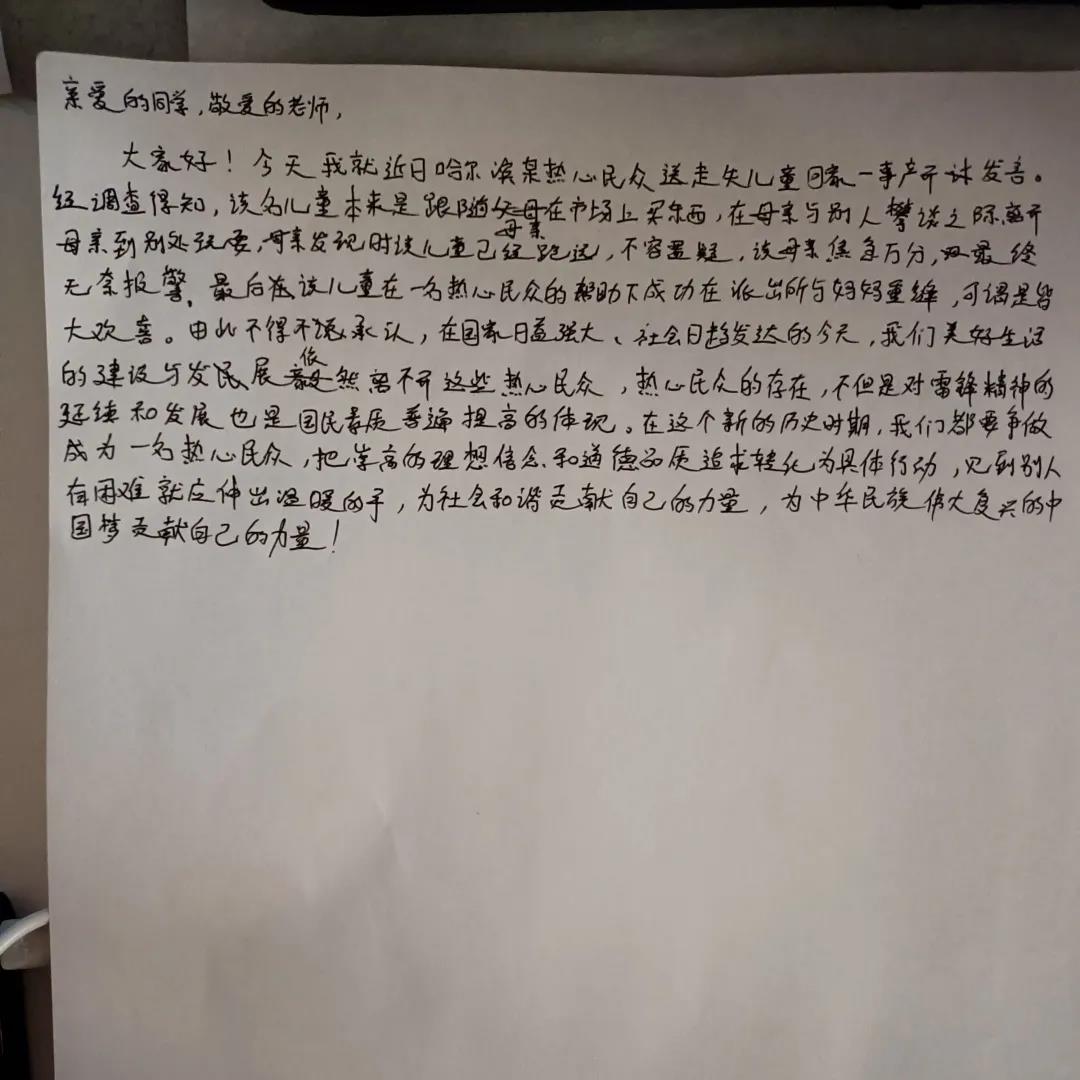 亲爱的同学,敬爱的老师,
大家好!今天我就近日哈尔滨某热心民众送走失儿童回家一事产开讲发言。
经调查得知,该名儿童本来是跟随母亲在市场上买东西,在母亲与别人攀谈之际离开
母亲到别处玩耍,母亲发现时该儿童已经跑远,不容置疑,该母亲焦急万分,最终
无奈报警,最后该儿童在一名热心民众的帮助下成功在派出所与妈妈重缝,可谓是皆
大欢喜。由此不得不承认,在国家日益强大、社会日趋发达的今天,我们美好生活
的建设与发展依然离不开这些热心民众,热心民众的存在,不但是对雷锋精神的
延续和发展也是国民素质普遍提高的体现。在这个新的历史时期,我们都要争做
成为一名热心民众,把崇高的理想信念和道德品质追求转化为具体行动,见到别人
有困难就应伸出温暖的手,为社会和谐贡献自己的力量,为中华民族伟大复兴的中
国梦贡献自己的力量!